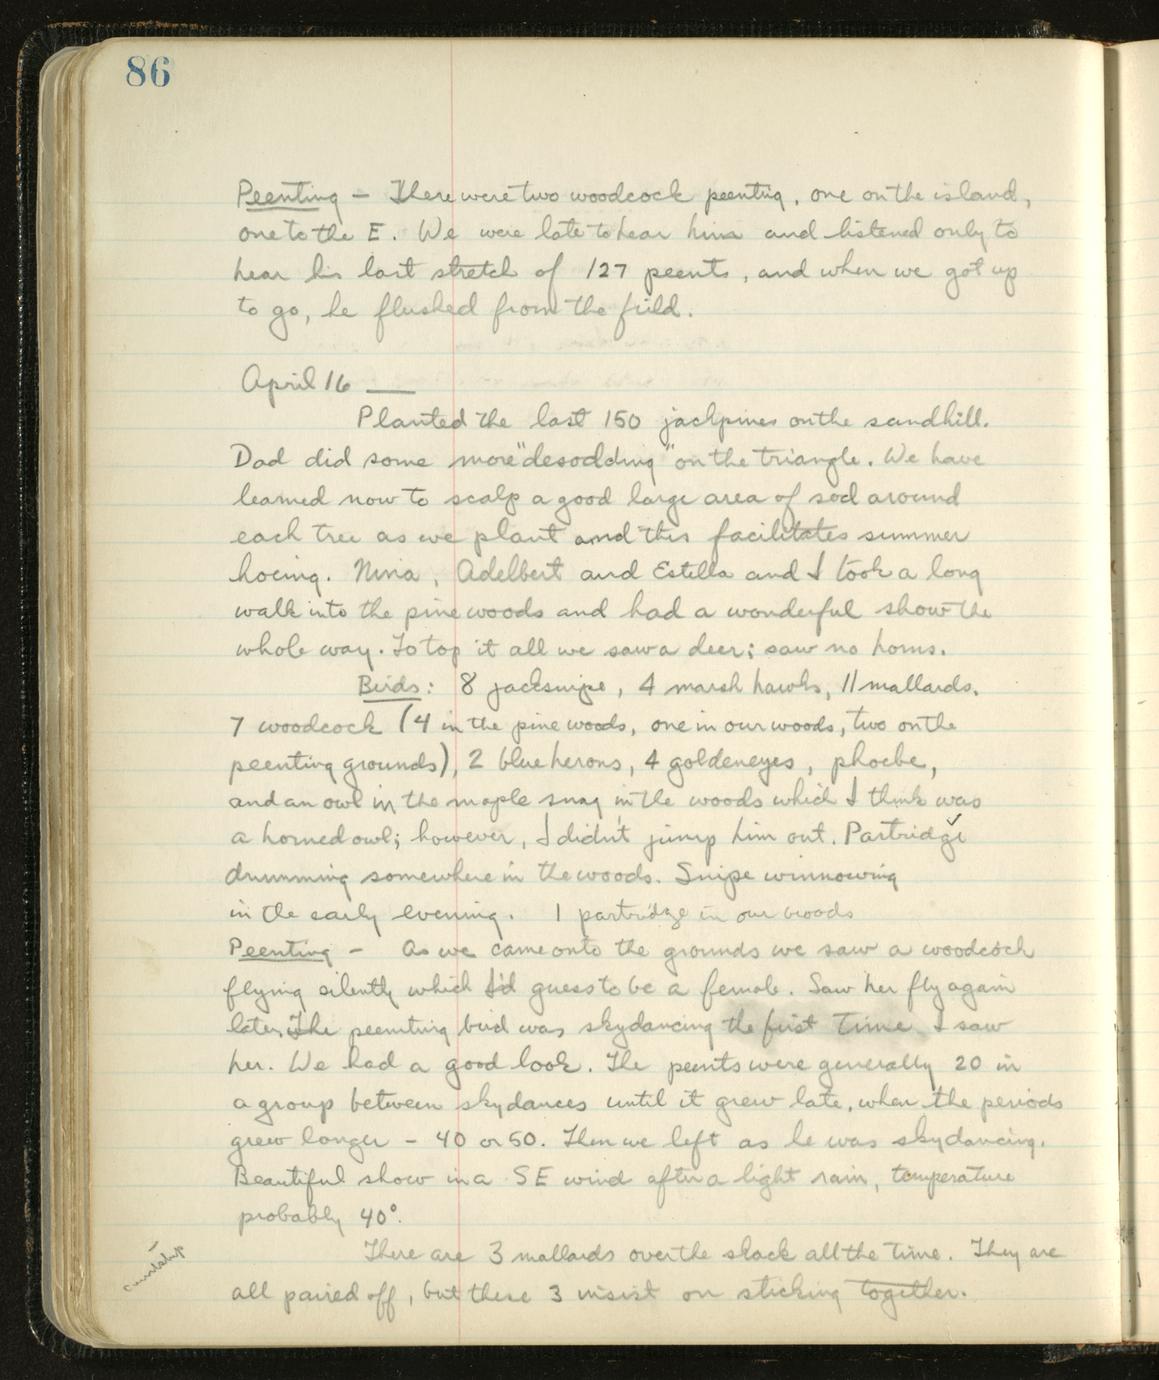 86
Peenting — There were two woodcock peenting, one on the island,
one to the E. We were late to hear him and listened only to
hear his last stretch of 127 peents, and when we got up
to go, he flushed from the field.
April 16 —
Planted the last 150 jackpines on the sandhill.
Dad did some more "desodding" on the triangle. We have
learned now to scalp a good large area of sod around
each tree as we plant and this facilitates summer
hoeing. Nina, Adelbert and Estella and I took a long
walk into the pine woods and had a wonderful show the
whole way. To top it all we saw a deer; saw no horns.
Birds: 8 jacksnipe, 4 marsh hawks, 11 mallards,
7 woodcock (4 in the pine woods, one in our woods, two on the
peenting grounds), 2 blue herons, 4 goldeneyes, phoebe,
and an owl in the maple snag in the woods which I think was
a horned owl; however, I didn't jump him out. Partridge
drumming somewhere in the woods. Snipe winnowing
in the early evening. 1 partridge in our woods
Peenting — As we came onto the grounds we saw a woodcock
flying silently which I'd guess to be a female. Saw her fly again
later. The peenting bird was skydancing the first time I saw
her. We had a good look. The peents were generally 20 in
a group between skydances until it grew late, when the periods
grew longer – 40 or 50. Then we left as he was skydancing.
Beautiful show in a SE wind after a light rain, temperature
probably 40°.
There are 3 mallards over the shack all the time. They are
all paired off, but these 3 insist on sticking together.